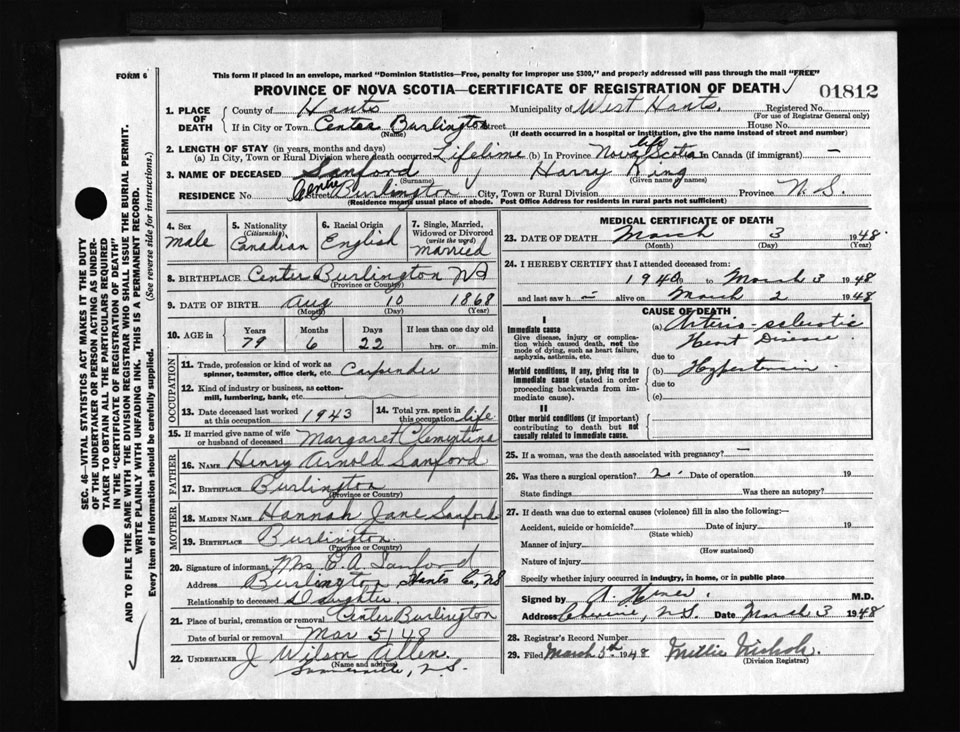 FORM 6
This form if placed in an envelope, marked "Dominion Statistics—Free, penalty for improper use $300," and properly addressed will pass through the mail "FREE"
PROVINCE OF NOVA SCOTIA—CERTIFICATE OF REGISTRATION OF DEATH
01812
1. PLACE OF DEATH
County of Hants Municipality of West Hants. Registered No.
(For use of Registrar General only)
If in City or Town Center Burlington Street House No.
(Name) (If death occurred in a hospital or institution, give the name instead of street and number)
2. LENGTH OF STAY (in years, months and days)
(a) In City, Town or Rural Division where death occurred Lifetime (b) In Province Nova Scotia life In Canada (if immigrant) —
3. NAME OF DECEASED Sanford Harry King
(Surname) (Given name or names)
RESIDENCE No Street Center Burlington City, Town or Rural Division Province N.S.
(Residence means usual place of abode. Post Office Address for residents in rural parts not sufficient)
4. Sex male
5. Nationality (Citizenship) Canadian
6. Racial Origin English
7. Single, Married, Widowed or Divorced (write the word) married
8. BIRTHPLACE Center Burlington NS
(Province or Country)
9. DATE OF BIRTH Aug 10 1868
(Month) (Day) (Year)
10. AGE in Years Months Days If less than one day old
79 6 22 hrs. or min.
OCCUPATION
11. Trade, profession or kind of work as spinner, teamster, office clerk, etc. Carpender
12. Kind of industry or business, as cotton-mill, lumbering, bank, etc
13. Date deceased last worked at this occupation 1943
14. Total yrs. spent in this occupation life
15. If married give name of wife or husband of deceased Margaret Clementina
FATHER
16. NAME Henry Arnold Sanford
17. BIRTHPLACE Burlington
(Province or Country)
MOTHER
18. MAIDEN NAME Hannah Jane Sanford
19. BIRTHPLACE Burlington.
(Province or Country)
20. Signature of informant Mrs. C. A. Sanford
Address Burlington Hants Co, NS
Relationship to deceased Daughter
21. Place of burial, cremation or removal Center Burlington
Date of burial or removal Mar 5/48
22. UNDERTAKER J Wilson Allen.
(Name and address)
Summerville, N.S.
MEDICAL CERTIFICATE OF DEATH
23. DATE OF DEATH March 3 1948
(Month) (Day) (Year)
24. I HEREBY CERTIFY that I attended deceased from:
1940 to March 3 1948
and last saw h — alive on March 2 1948
CAUSE OF DEATH
I
Immediate cause
Give disease, injury or complication which caused death, not the mode of dying, such as heart failure, asphyxia, asthenia, etc.
(a) Arterio-sclerotic
Heart Disease
due to
Morbid conditions, if any, giving rise to immediate cause (stated in order proceeding backwards from immediate cause).
(b) Hypertension
due to
(c)
II
Other morbid conditions (if important) contributing to death but not causally related to immediate cause.
25. If a woman, was the death associated with pregnancy? —
26. Was there a surgical operation? Date of operation 19
State findings Was there an autopsy?
27. If death was due to external causes (violence) fill in also the following:—
Accident, suicide or homicide? Date of injury 19
(State which)
Manner of injury
(How sustained)
Nature of injury
Specify whether injury occurred in industry, in home, or in public place
Signed by A. M.D.
Address N.S. Date March 3 1948
28. Registrar's Record Number
29. Filed March 5th 1948 Millie Nichols.
(Division Registrar)
SEC. 46—VITAL STATISTICS ACT MAKES IT THE DUTY
OF THE UNDERTAKER OR PERSON ACTING AS UNDER-
TAKER TO OBTAIN ALL THE PARTICULARS REQUIRED
IN THE "CERTIFICATE OF REGISTRATION OF DEATH"
AND TO FILE THE SAME WITH THE DIVISION REGISTRAR WHO SHALL ISSUE THE BURIAL PERMIT.
WRITE PLAINLY WITH UNFADING INK. THIS IS A PERMANENT RECORD.
Every item of information should be carefully supplied. (See reverse side for instructions.)